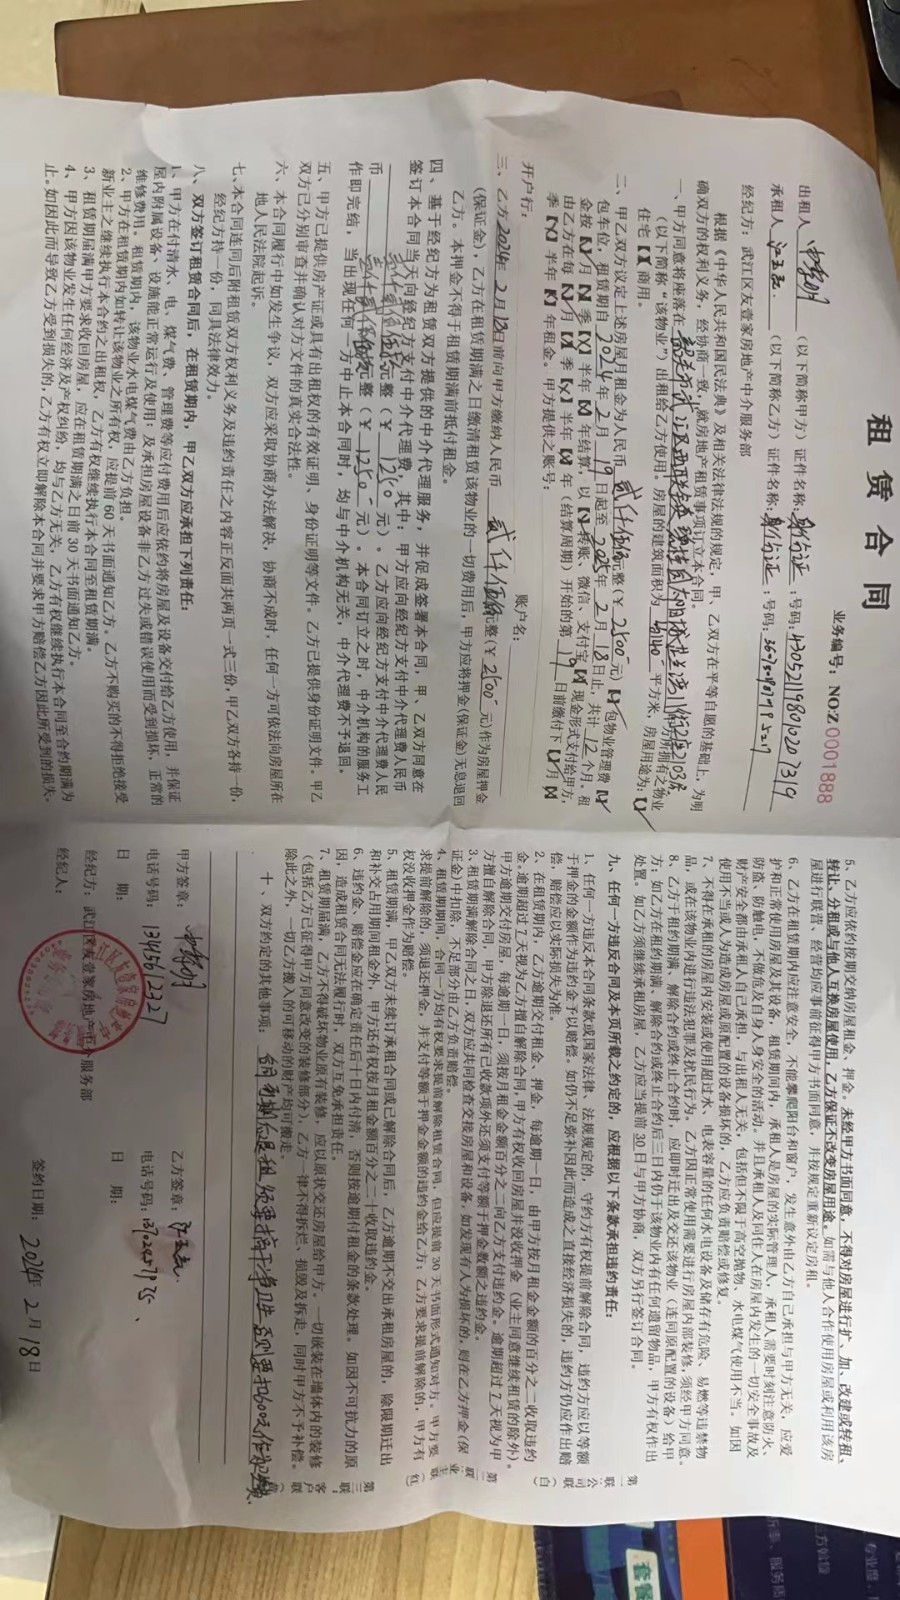 租赁合同
业务编号：NO:Z0001888
出租人 （以下简称甲方）证件名称：身份证：号码：430521198010207319
承租人 江玉孟 （以下简称乙方）证件名称：身份证：号码：
经纪方：武江区友壹家房地产中介服务部
根据《中华人民共和国民法典》及相关法律法规的规定，甲、乙双方在平等自愿的基础上，为明
确双方的权利义务，经协商一致，就房地产租赁事项订立本合同。
一、甲方同意将座落在韶关市武江区西联 房的房所拥有之物业
（以下简称“该物业”）出租给乙方使用。房屋的建筑面积为 平方米，房屋用途为：【√】
住宅【×】商用。
二、甲乙双方议定上述房屋月租金为人民币 贰仟伍佰元整（￥2500-元）【√】包物业管理费【√】
包车位，租赁期自2024年2月19日起至2025年2月18日止，共计12个月。租
金按【√】月【×】季【×】半年【×】年结算。以【×】转账、微信、支付宝【×】现金形式支付给甲方，
由乙方在每【√】月【×】季【×】半年【×】年（结算周期）开始的第19日前缴付下【√】月【×】
季【×】半年【×】年租金。甲方提供之账号：
开户行： 账户名：
三、乙方2024年2月18日前向甲方缴纳人民币 贰仟伍佰元整（￥2500-元）作为房屋押金
（保证金），乙方在租赁期满之日缴清租赁该物业的一切费用后，甲方应将押金（保证金）无息退回
乙方。本押金不得于租赁期满前抵付租金。
四、基于经纪方为租赁双方提供的中介代理服务，并促成签署本合同，甲、乙双方同意在
签订本合同当天向经纪方支付中介代理费，其中：甲方应向经纪方支付中介代理费人民币
壹仟贰佰伍拾元整（￥1250-元）。乙方应向经纪方支付中介代理费人民
币 壹仟贰佰伍拾元整（￥1250-元）。本合同订立之时，中介机构的服务工
作即完结，当出现任何一方中止本合同时，均与中介机构无关，中介代理费不予退回。
五、甲方已提供房产证或具有出租权的有效证明、身份证明等文件。乙方已提供身份证明文件。甲乙
双方已分别审查并确认对方文件的真实合法性。
六、本合同履行中如发生争议，双方应采取协商办法解决，协商不成时，任何一方可依法向房屋所在
地人民法院起诉。
七、本合同连同后附租赁双方权利义务及违约责任之内容正反面共两页一式三份，甲乙双方各持一份，
经纪方持一份，同具法律效力。
八、双方签订租赁合同后，在租赁期内，甲乙双方应承担下列责任：
1、甲方在付清水、电、煤气费、管理费等应付费用后应依约将房屋及设备交付给乙方使用，并保证
屋内附属设备、设施能正常运行及使用；及承担房屋设备非乙方过失或错误使用而受到损坏，正常的
维修费用。租赁期内，该物业水电煤气费由乙方负担。
2、甲方在租赁期内如转让该物业之所有权，应提前60天书面通知乙方。乙方不购买的不得拒绝接受
新业主之继续执行本合约之出租权，乙方有权继续执行本合同至租赁期满。
3、租赁期届满甲方要求收回房屋，应在租赁期满之日前30天书面通知乙方。
4、甲方因该物业发生任何经济及产权纠纷，均与乙方无关，乙方有权继续执行本合同至合约期满为
止。如因此而导致乙方受到损失的，乙方有权立即解除本合同并要求甲方赔偿乙方因此所受到的损失。
5、乙方应依约按期交纳房屋租金、押金。未经甲方书面同意，不得对房屋进行扩、加、改建或转租、
转让、分租或与他人互换房屋使用，乙方保证不改变房屋用途。如需与他人合作使用房屋或利用该房
屋进行联营、经营均应事前征得甲方书面同意，并按规定重新议定房租。
6、乙方在租赁期内应注意安全，不能攀爬阳台和窗户，发生意外由乙方自己承担与甲方无关，应爱
护和正常使用房屋及其设备，租赁期间内，承租人是房屋的实际管理人，承租人需要时刻注意防火、
防盗、防触电，不做危及自身人身安全的活动，并且承租人及同住人在房屋内发生的一切安全事故及
财产安全都由承租人自己承担，与出租人无关，包括但不限于高空抛物、水电煤气使用不当。如因
使用不当或人为造成房屋或原配置的设备损坏的，乙方应负责赔偿或修复。
7、不得在承租的房屋内安装或使用超过水、电表容量的任何水电设备及储存有危险、易燃等违禁物
品，或在该物业内进行违法犯罪及扰民行为，乙方因正常使用需要进行房屋内部装修，须经甲方同意。
8、乙方于租约期满、解除合约或终止合约时，应即时迁出及交还该物业（连同原配置的设备）给甲
方；如乙方在租约期满、解除合约或终止合约后三日内仍于该物业内有任何遗留物品，甲方有权作出
处置。如乙方须继续承租房屋，乙方应当提前30日与甲方协商，双方另行签订合同。
九、任何一方违反合同及本页所载之约定的，应根据以下条款承担违约责任：
1、任何一方违反本合同条款或国家法律、法规规定的，守约方有权提前解除合同，违约方应以等额
于押金的金额作为违约金予以赔偿。如仍不足弥补因此而造成之直接经济损失的，违约方仍应作出赔
偿，赔偿应以实际损失为准。
2、在租赁期内，乙方逾期交付租金、押金，每逾期一日，由甲方按月租金金额的百分之二收取违约
金；逾期超过7天视为乙方擅自解除合同，甲方有权收回房屋并没收押金（业主同意继续租赁的除外）。
甲方逾期交付房屋，每逾期一日，须按月租金金额百分之二向乙方支付违约金。逾期超过7天视为甲
方擅自解除合同，甲方除退还所有已收款项外还须支付等额于押金数额之违约金。
3、租赁期满解除合同之日，双方应共同检查交接房屋和设备，如发现有人为损坏的，则在乙方押金（保
证金）中扣除，不足部分由乙方负责赔偿。
4、租赁期期间，合同一方均有权要求提前解除租赁合同，但应提前30天书面形式通知对方。甲方要
求提前解除的，须退还押金，并支付等额于押金金额的违约金给乙方；乙方要求提前解除的，甲方有
权没收押金作为赔偿。
5、租赁期满，甲乙双方未续订承租合同或已解除合同后，乙方逾期不交出承租房屋的，除限期迁出
和补交占用期间租金外，甲方还有权按月租金额百分之二十收取违约金。
6、违约金、赔偿金应在确定责任后十日内付清，否则按逾期付租金的条款处理。如因不可抗力的原
因，造成租赁合同无法履行时，双方互免承担责任。
7、租赁期届满，乙方不得破坏物业原有装修，应以原状交还房屋给甲方。一切嵌装在墙体内的装修
（包括乙方已征得甲方同意改变的装修部分），乙方一律不得拆烂、损毁及拆走，同时甲方不予补偿。
除此之外，一切乙方搬入的可移动的财产均可搬走。
十、双方约定的其他事项： 合同到期后退租须要搞干净卫生 否则要扣600元作为
第一联：公司联（白）
第二联：业主联（红）
第三联：客户联
甲方签章：
乙方签章：江玉孟
电话号码：13456123271
电话号码：
日 期：
日 期：
经纪方：武江区友壹家房地产中介服务部
经纪人：
签约日期：2024年2月18日
套餐